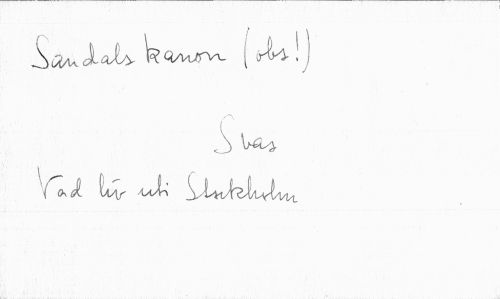 Sandals kanon (obs!)
Svas
Vad liv uti Stockholm